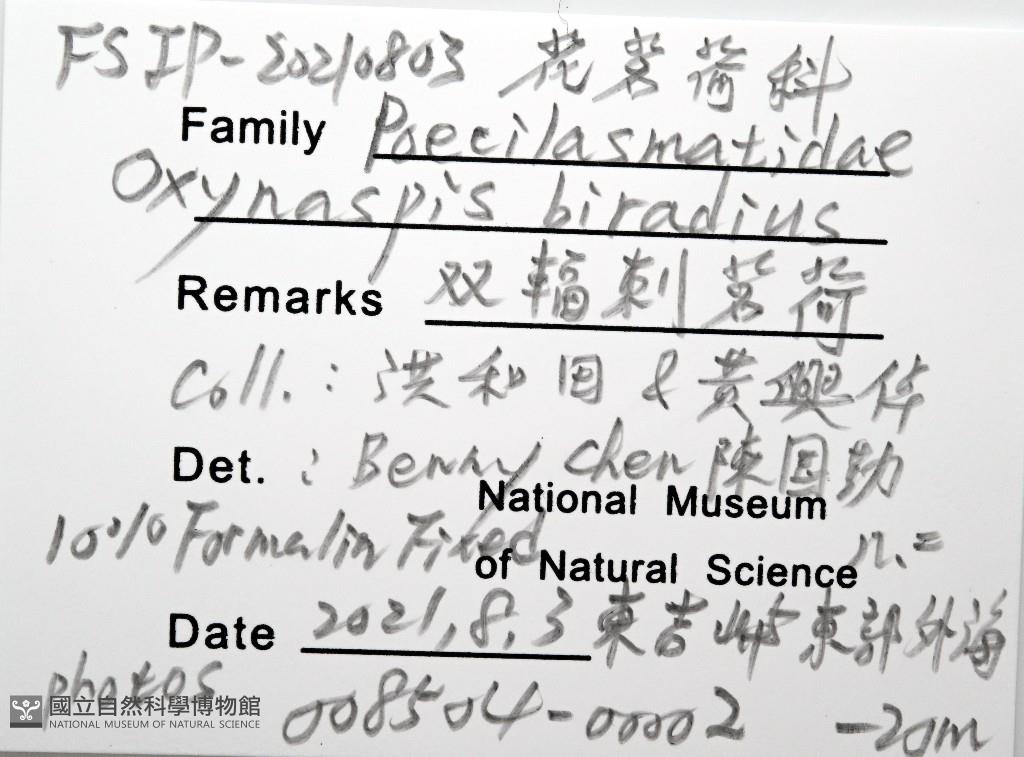 FSIP-20210803 花茗荷科
Family Poecilasmatidae
Oxynaspis biradius
Remarks 双輻刺茗荷
Coll.: 洪和田 & 黄興华
Det. : Benny Chen 陳国勤
National Museum
10% Formalin Fixed
of Natural Science n.=
Date 2021,8,3 東吉嶼東部外海
photos
008504-00002 -20m
國立自然科學博物館
NATIONAL MUSEUM OF NATURAL SCIENCE